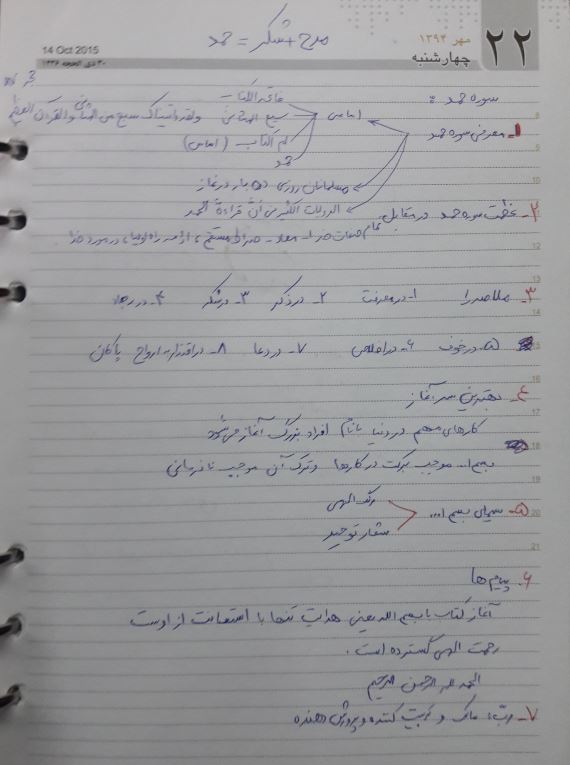 ۲۲
مهر ۱۳۹۴
چهارشنبه
14 Oct 2015
۳۰ ذی الحجه ۱۴۳۶
مدح + شکر = حمد
سوره حمد :
۱- معرفی سوره حمد
اسامی
فاتحه الکتاب
سبع المثانی ولقد آتیناک سبع من المثانی والقرآن العظیم
ام الکتاب (اساس)
حمد
مسلمانان روزی ده بار در نماز
۲- عظمت سوره حمد در مقابل تمام صفات خدا - معاد - صراط مستقیم ،
۳- ملاصدرا ۱- در معرفت ۲- در ذکر ۳- در شکر ۴- در رجاء
۵- در خوف ۶- در اخلاص ۷- در دعا ۸- در اقتدا به ارواح پاکان
۴- بهترین سرآغاز
کارهای مهم در دنیا با نام افراد بزرگ آغاز می‌شود
بسم ا... موجب برکت در کارها و ترک آن موجب نافرمانی
۵- سیمای بسم ا...
رنگ الهی
شعار توحید
۶- پیام ها
آغاز کتاب با بسم الله یعنی هدایت تنها با استعانت از اوست
رحمت الهی گسترده است .
الحمد لله الرحمن الرحیم
۷- رب: مالک و تربیت کننده و پرورش دهنده